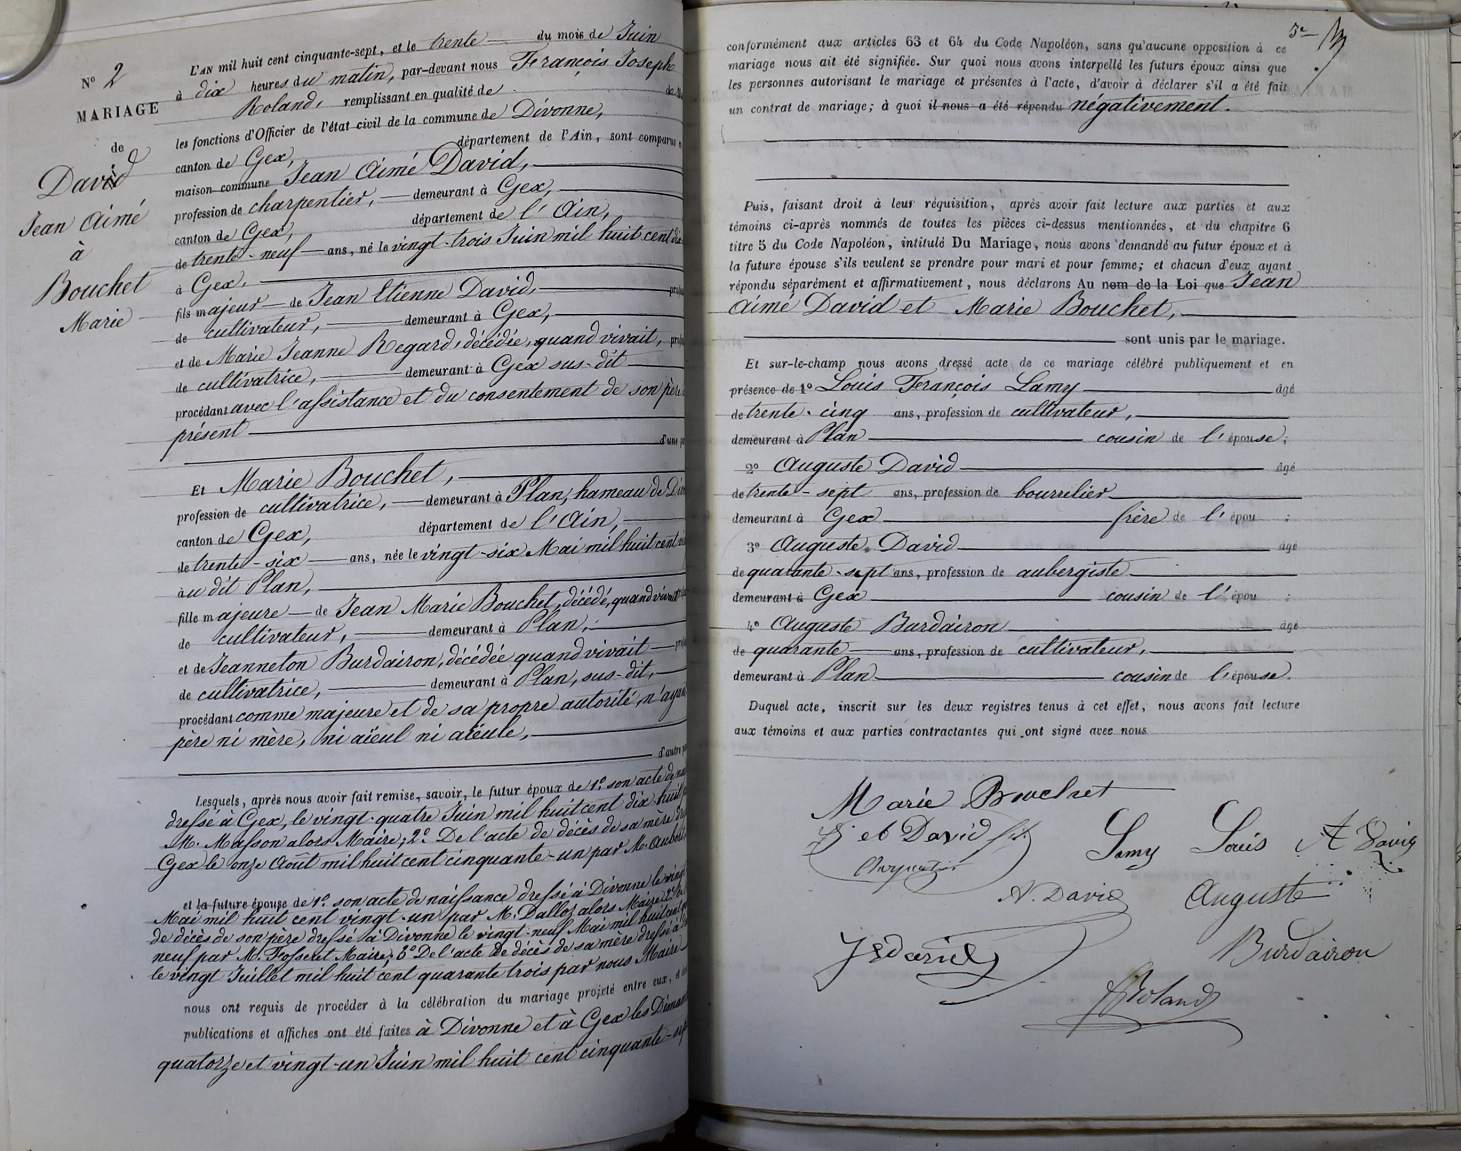 N° 2
MARIAGE
de
David
Jean Aimé
à
Bouchet
Marie
L'AN mil huit cent cinquante-sept, et le trente du mois de Juin
à dix heures du matin, par-devant nous François Joseph
Roland, remplissant en qualité de
les fonctions d'Officier de l'état-civil de la commune de Divonne,
canton de Gex, département de l'Ain, sont comparus
maison commune Jean Aimé David,
profession de charpentier, demeurant à Gex,
canton de Gex, département de l'Ain,
de trente-neuf ans, né le vingt-trois Juin mil huit cent
à Gex,
fils majeur de Jean Etienne David,
de cultivateur, demeurant à Gex,
et de Marie Jeanne Regard, décédée, quand vivait,
de cultivatrice, demeurant à Gex sus-dit
procédant avec l'assistance et du consentement de son père
présent
d'une
Et Marie Bouchet,
profession de cultivatrice, demeurant à Plan, hameau de
canton de Gex, département de l'Ain,
de trente-six ans, née le vingt-six Mai mil huit cent
au dit Plan,
fille majeure de Jean Marie Bouchet, décédé, quand vivait
de cultivateur, demeurant à Plan,
et de Jeanneton Burdairon, décédée quand vivait
de cultivatrice, demeurant à Plan, sus-dit,
procédant comme majeure et de sa propre autorité, n'ayant
père ni mère, ni aïeul ni aïeule,
d'autre
Lesquels, après nous avoir fait remise, savoir, le futur époux de 1° son acte de
dressé à Gex, le vingt-quatre Juin mil huit cent dix-huit
M. Masson alors Maire; 2° De l'acte de décès de sa mère
Gex le onze Août mil huit cent cinquante-un par M.
et la future épouse de 1° son acte de naissance dressé à Divonne le vingt
Mai mil huit cent vingt-un par M. Dalloz alors Maire 2°
de décès de son père dressé à Divonne le vingt-neuf Mai mil huit cent
neuf par M. Fosseret Maire; 3° De l'acte de décès de sa mère dressé à
le vingt Juillet mil huit cent quarante trois par nous Maire
nous ont requis de procéder à la célébration du mariage projeté entre eux,
publications et affiches ont été faites à Divonne et à Gex les
quatorze et vingt-un Juin mil huit cent cinquante-sept
5e
conformément aux articles 63 et 64 du Code Napoléon, sans qu'aucune opposition à ce
mariage nous ait été signifiée. Sur quoi nous avons interpellé les futurs époux ainsi que
les personnes autorisant le mariage et présentes à l'acte, d'avoir à déclarer s'il a été fait
un contrat de mariage; à quoi il nous a été répondu négativement.
Puis, faisant droit à leur réquisition, après avoir fait lecture aux parties et aux
témoins ci-après nommés de toutes les pièces ci-dessus mentionnées, et du chapitre 6
titre 5 du Code Napoléon, intitulé Du Mariage, nous avons demandé au futur époux et à
la future épouse s'ils veulent se prendre pour mari et pour femme; et chacun d'eux ayant
répondu séparément et affirmativement, nous déclarons Au nom de la Loi que Jean
Aimé David et Marie Bouchet,
sont unis par le mariage.
Et sur-le-champ nous avons dressé acte de ce mariage célébré publiquement et en
présence de 1° Louis François Lamy âgé
de trente-cinq ans, profession de cultivateur,
demeurant à Plan cousin de l'épouse;
2° Auguste David âgé
de trente-sept ans, profession de bourrelier
demeurant à Gex frère de l'épou ;
3° Auguste David âgé
de quarante-sept ans, profession de aubergiste
demeurant à Gex cousin de l'épou ;
4° Auguste Burdairon âgé
de quarante ans, profession de cultivateur,
demeurant à Plan cousin de l'épouse.
Duquel acte, inscrit sur les deux registres tenus à cet effet, nous avons fait lecture
aux témoins et aux parties contractantes qui ont signé avec nous
Marie Bouchet
David
Lamy Louis A David
Charpentier
A. David Auguste
Burdairon
Roland